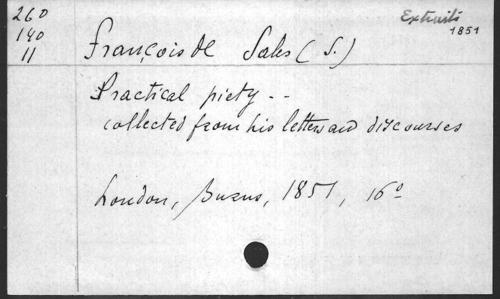 260
140
11
Extraits
1851
François de Sales (S.)
Practical piety --
collected from his letters and discourses
London, Burns, 1851, 16º